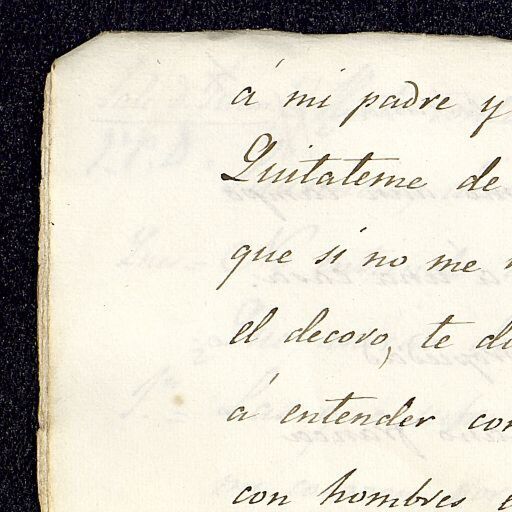 á mi padre y
Quitateme de
que si no me
el decoro, te
á entender
con hombres